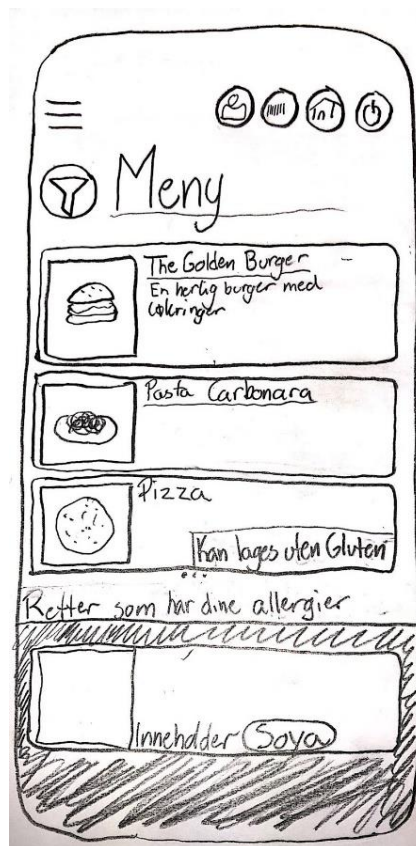 Meny
The Golden Burger
En herlig burger med
løkringer
Pasta Carbonara
Pizza
Kan lages uten Gluten
Retter som har dine allergier
Inneholder Soya